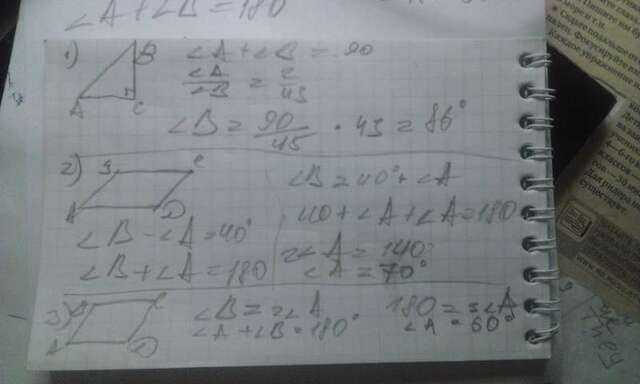 ∠A + ∠B = 180
1)
B
A
C
∠A + ∠B = 90
∠A/∠B = 2/43
∠B = 90/45 · 43 = 86°
2)
B
C
A
D
∠B - ∠A = 40°
∠B + ∠A = 180
∠B = 40° + ∠A
40 + ∠A + ∠A = 180
2∠A = 140°
∠A = 70°
3)
A
D
∠B = 2∠A
∠A + ∠B = 180°
180 = 3∠A
∠A = 60°